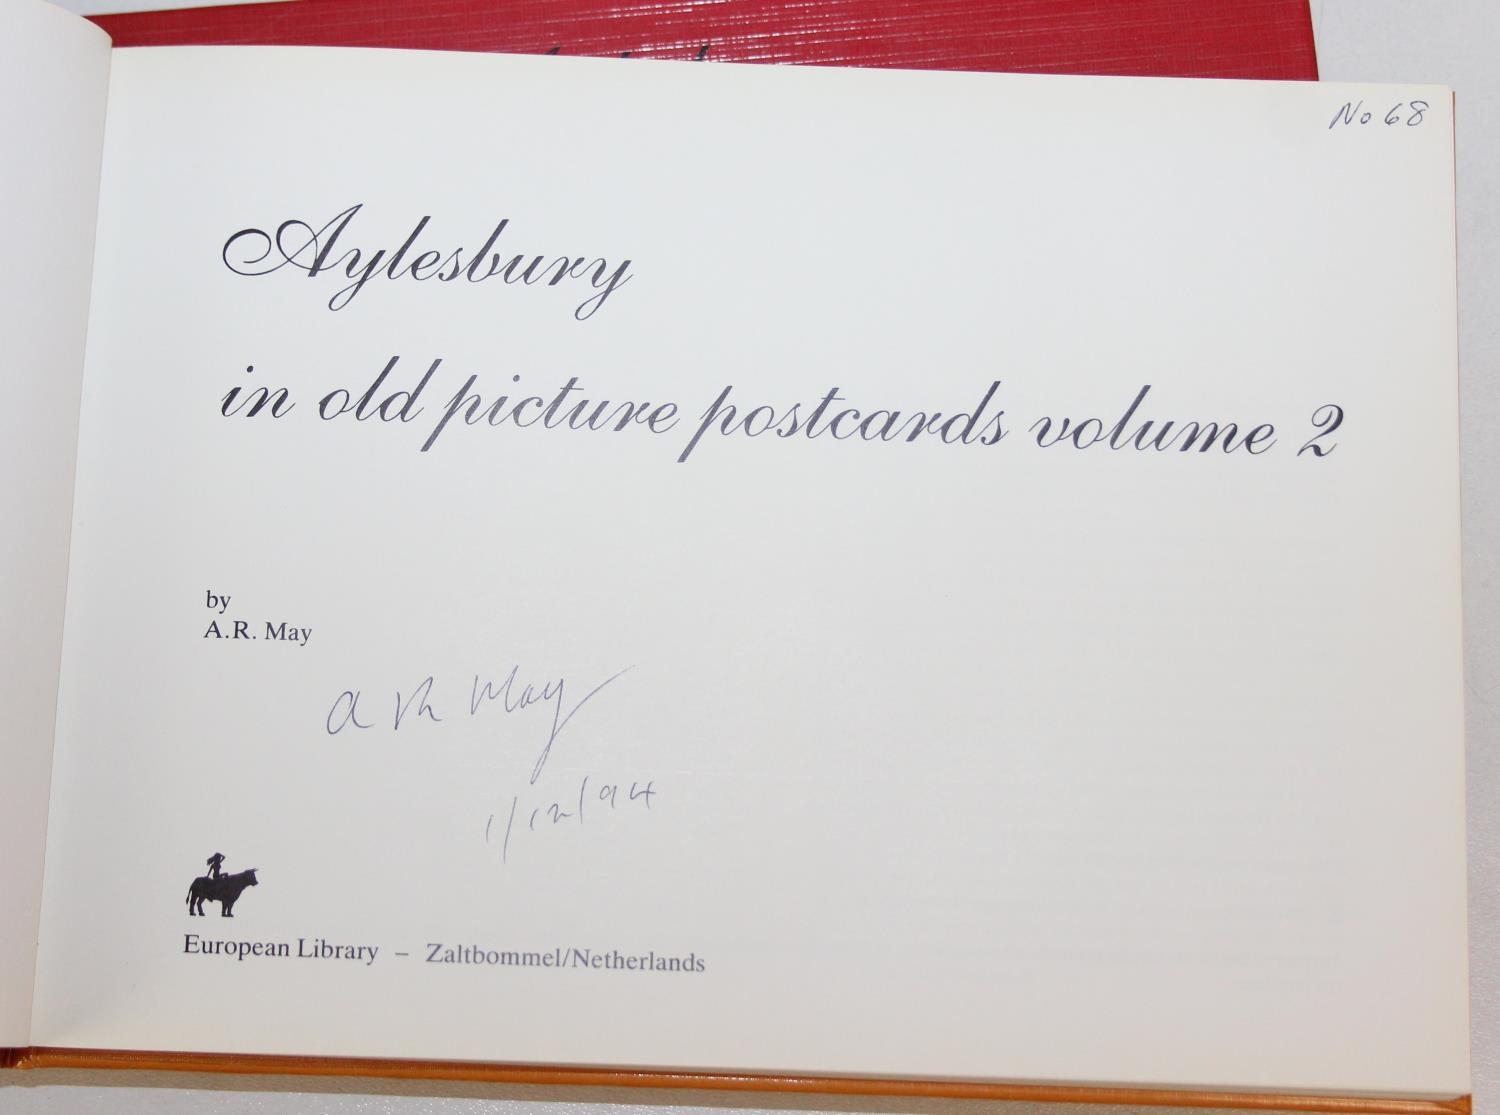 No 68
Aylesbury
in old picture postcards volume 2
by
A.R. May
A R May
1/12/94
European Library – Zaltbommel/Netherlands